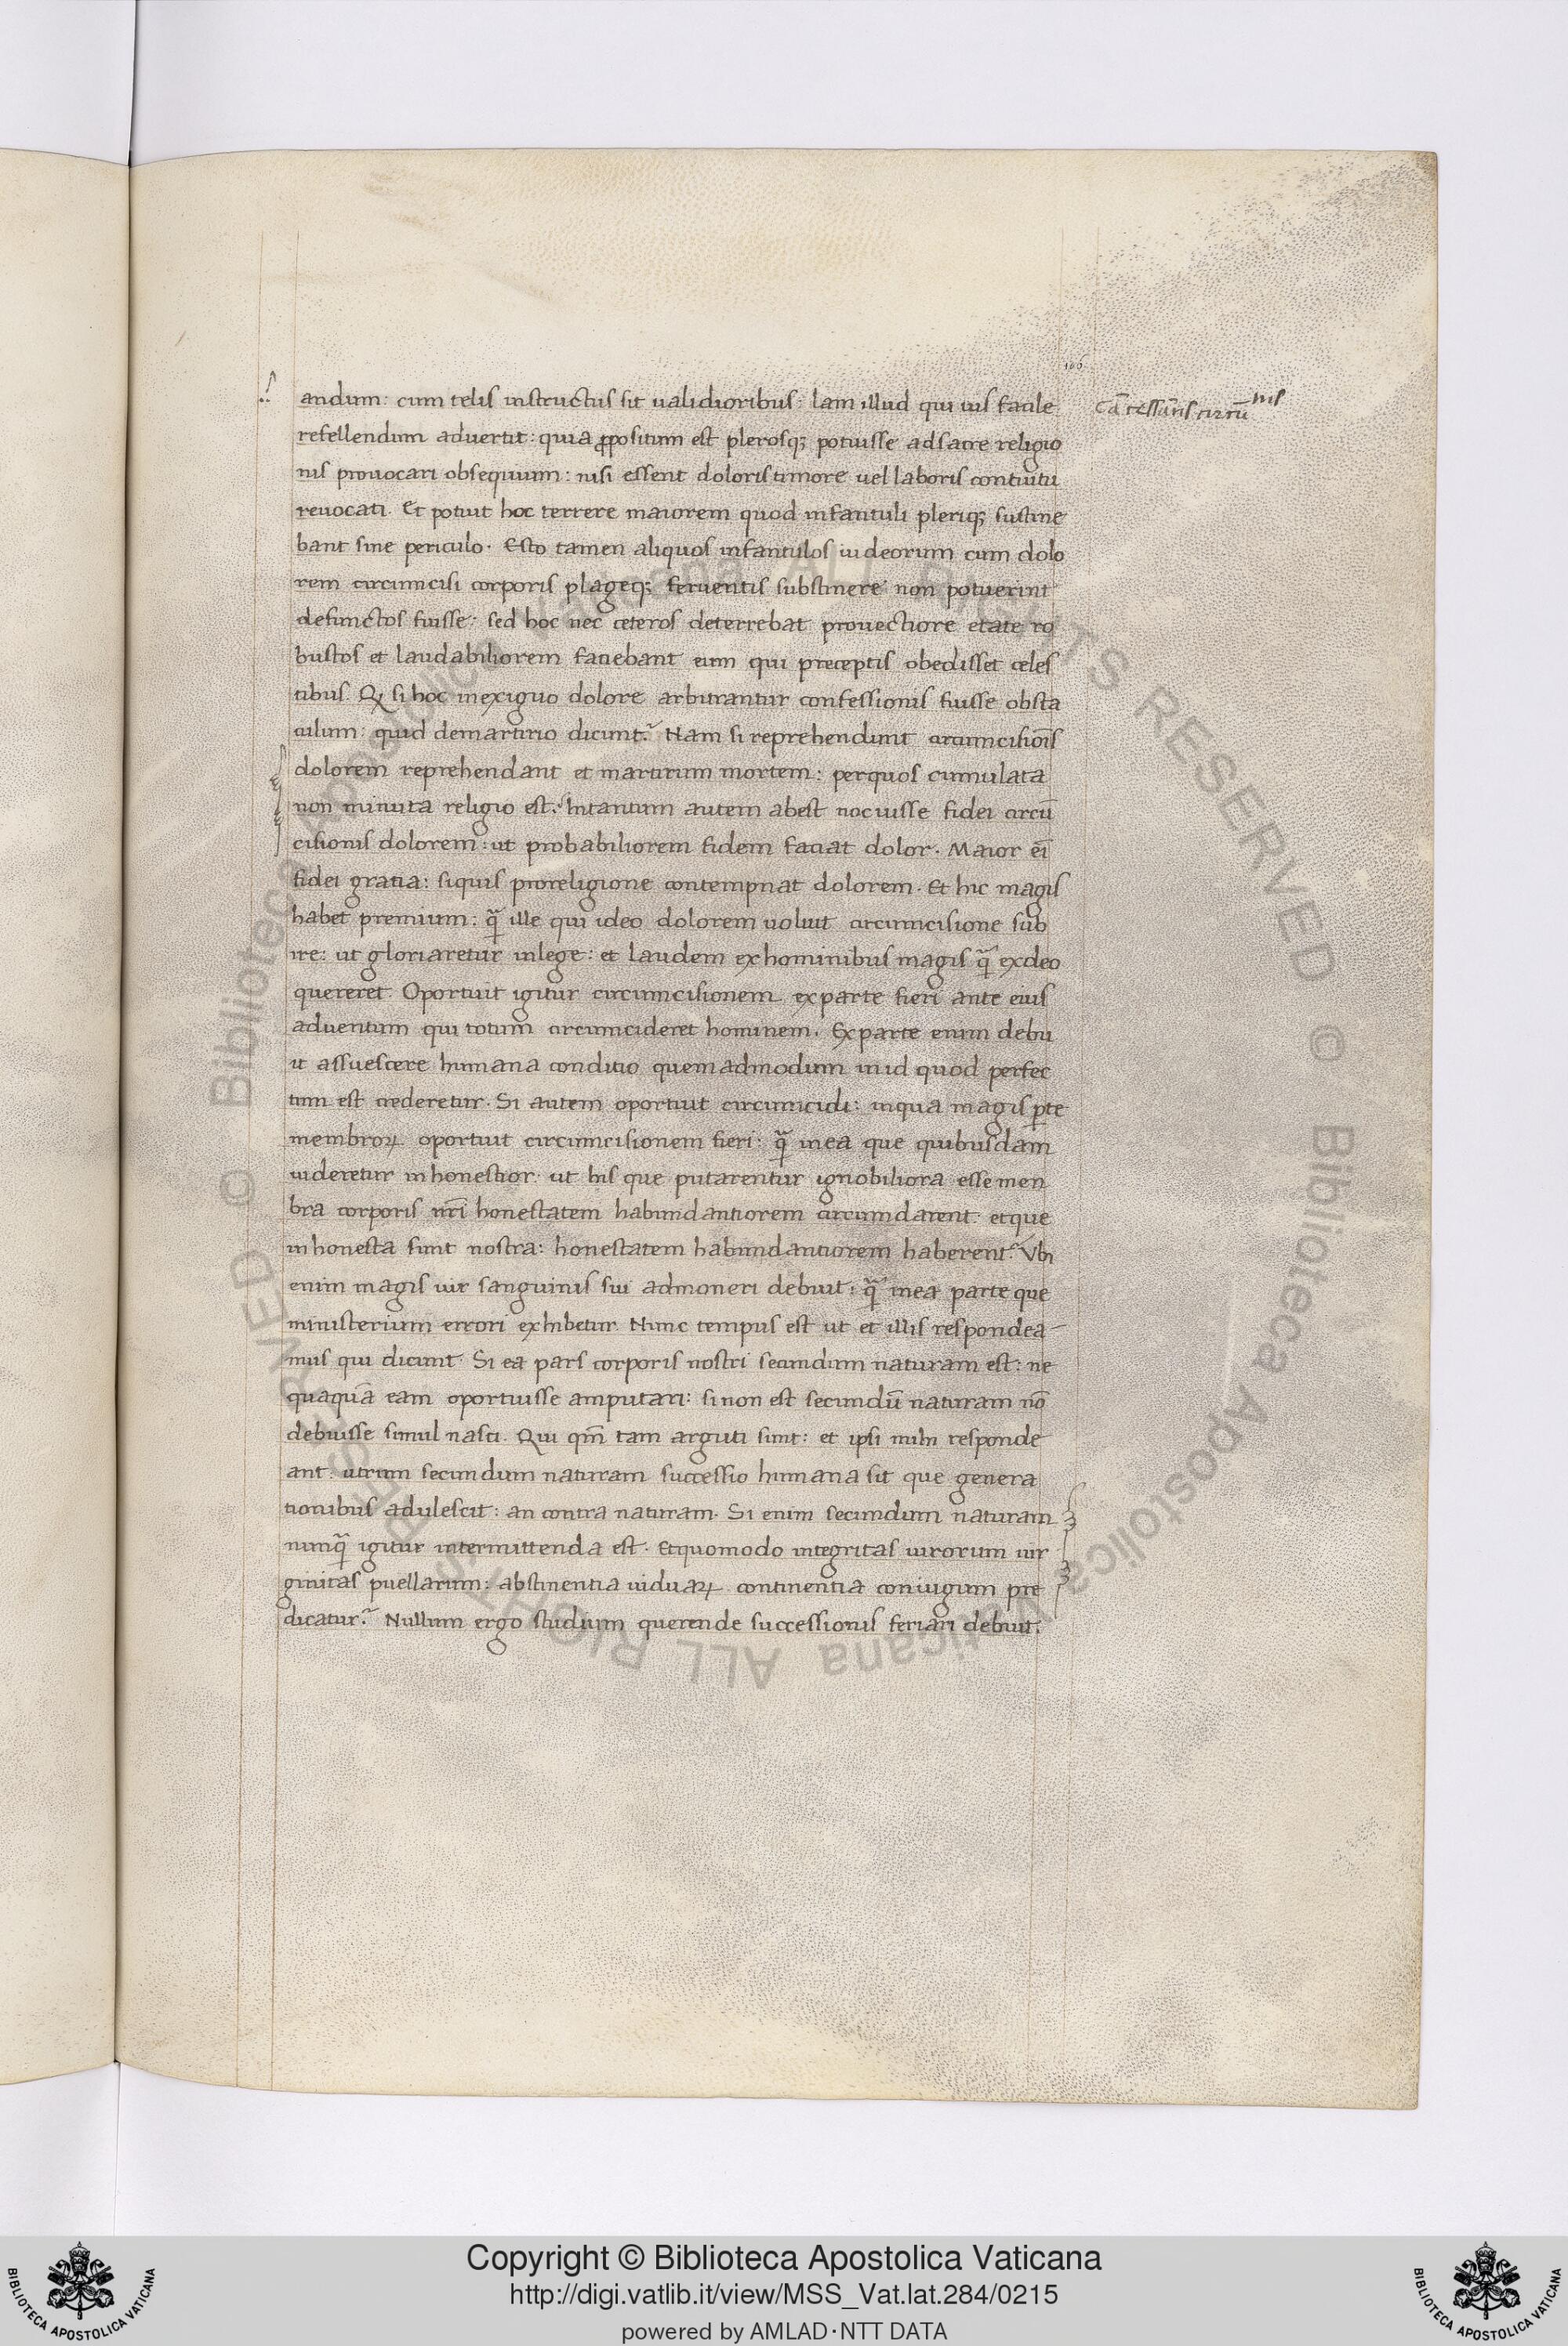 106
andum: cum telis instructus sit ualidioribus: Iam illud qui uis facile
cā cessāris circū nis
refellendum aduertit: quia ꝓpositum est plerosq; potuisse ad sacre religio
nis prouocari obsequium: nisi essent doloris timore uel laboris contuitu
reuocati. Et potuit hoc terrere maiorem quod infantuli pleriq; sustine
bant sine periculo. Esto tamen aliquos infantulos iudeorum cum dolo
rem circumcisi corporis plageq; feruentis substinere non potuerint
defunctos fuisse: sed hoc nec ceteros deterrebat prouectiore etate ro
bustos et laudabiliorem faciebant eum qui preceptis obedisset celes
tibus. Qȝ si hoc in exiguo dolore arbitrantur confessionis fuisse obsta
culum: quid de martirio dicunt? Nam si reprehendunt circumcisiōis
dolorem reprehendant et martirum mortem: per quos cumulata
non minuta religio est. In tantum autem abest nocuisse fidei circū
cisionis dolorem: ut probabiliorem fidem faciat dolor. Maior ei̅
fidei gratia: si quis pro religione contempnat dolorem. Et hic magis
habet premium: qᷓ ille qui ideo dolorem uoluit circumcisione sub
ire: ut gloriaretur in lege: et laudem ex hominibus magis qᷓ ex deo
quereret. Oportuit igitur circumcisionem ex parte fieri ante eius
aduentum qui totum circumcideret hominem. Ex parte enim debu
it assuescere humana conditio quemadmodum in id quod perfec
tum est crederetur. Si autem oportuit circumcidi: in qua magis ꝑte
membroꝝ oportuit circumcisionem fieri: qᷓ in ea que quibusdam
uideretur inhonestior ut his que putarentur ignobiliora esse men
bra corporis nr̄i honestatem habundantiorem circumdarent: et que
inhonesta sunt nostra: honestatem habundantiorem haberent? Vbi
enim magis uir sanguinis sui admoneri debuit: qᷓ in ea parte que
ministerium errori exhibetur. Nunc tempus est ut et illis respondea-
mus qui dicunt. Si ea pars corporis nostri secundum naturam est: ne
quaquā eam oportuisse amputari: si non est secundū naturam nō
debuisse simul nasci. Qui qm̄ tam arguti sunt: et ipsi mihi responde
ant: utrum secundum naturam successio humana sit que genera
tionibus adulescit: an contra naturam. Si enim secundum naturam
nunqᷓ igitur intermittenda est. Et quomodo integritas uirorum uir
ginitas puellarum: abstinentia uiduaꝝ continentia coniugum pre
dicatur? Nullum ergo studium querende successionis feriari debuit.
© Biblioteca Apostolica Vaticana ALL RIGHTS RESERVED © Biblioteca Apostolica Vaticana ALL RIGHTS RESERVED
BIBLIOTECA APOSTOLICA VATICANA
Copyright © Biblioteca Apostolica Vaticana
http://digi.vatlib.it/view/MSS_Vat.lat.284/0215
powered by AMLAD·NTT DATA
BIBLIOTECA APOSTOLICA VATICANA